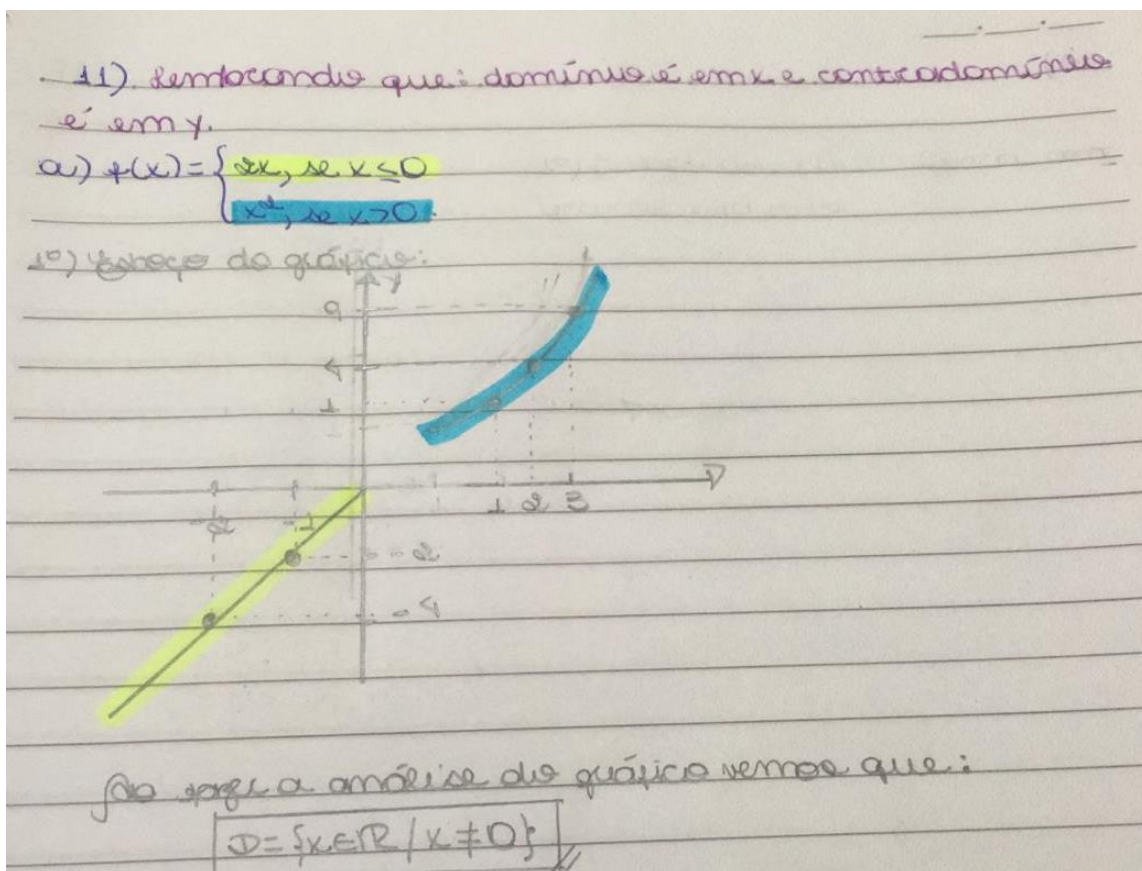 11) Lembrando que: domínio é em x e contradomínio
é em y.
a) f(x) = { 2x, se x ≤ 0
x², se x > 0.
1º) Esboço do gráfico:
y
9
4
1
-2 -1 1 2 3
-2
-4
Ao fazer a análise do gráfico vemos que:
D = {x ∈ R / x ≠ 0}